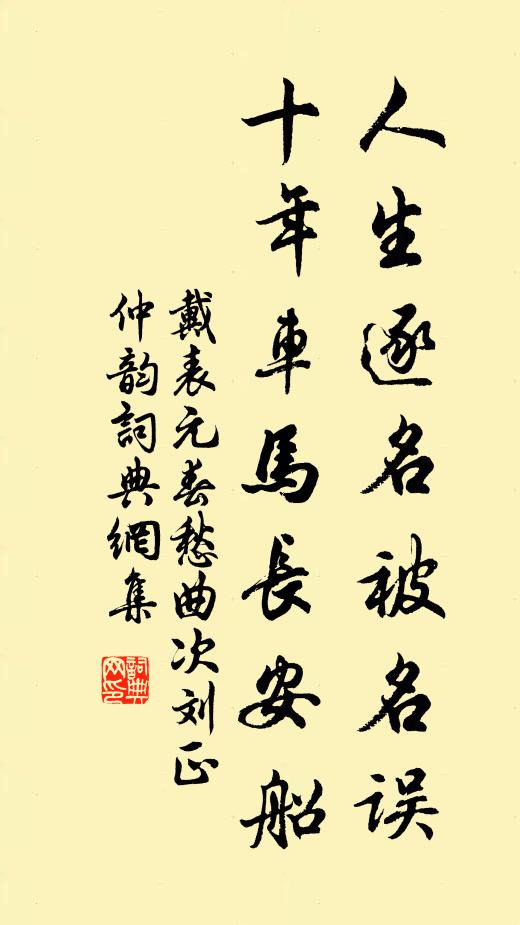 人生逐名被名误
十年車馬長安船
戴表元春愁曲次刘正
仲韵詞典網集
詞典網印